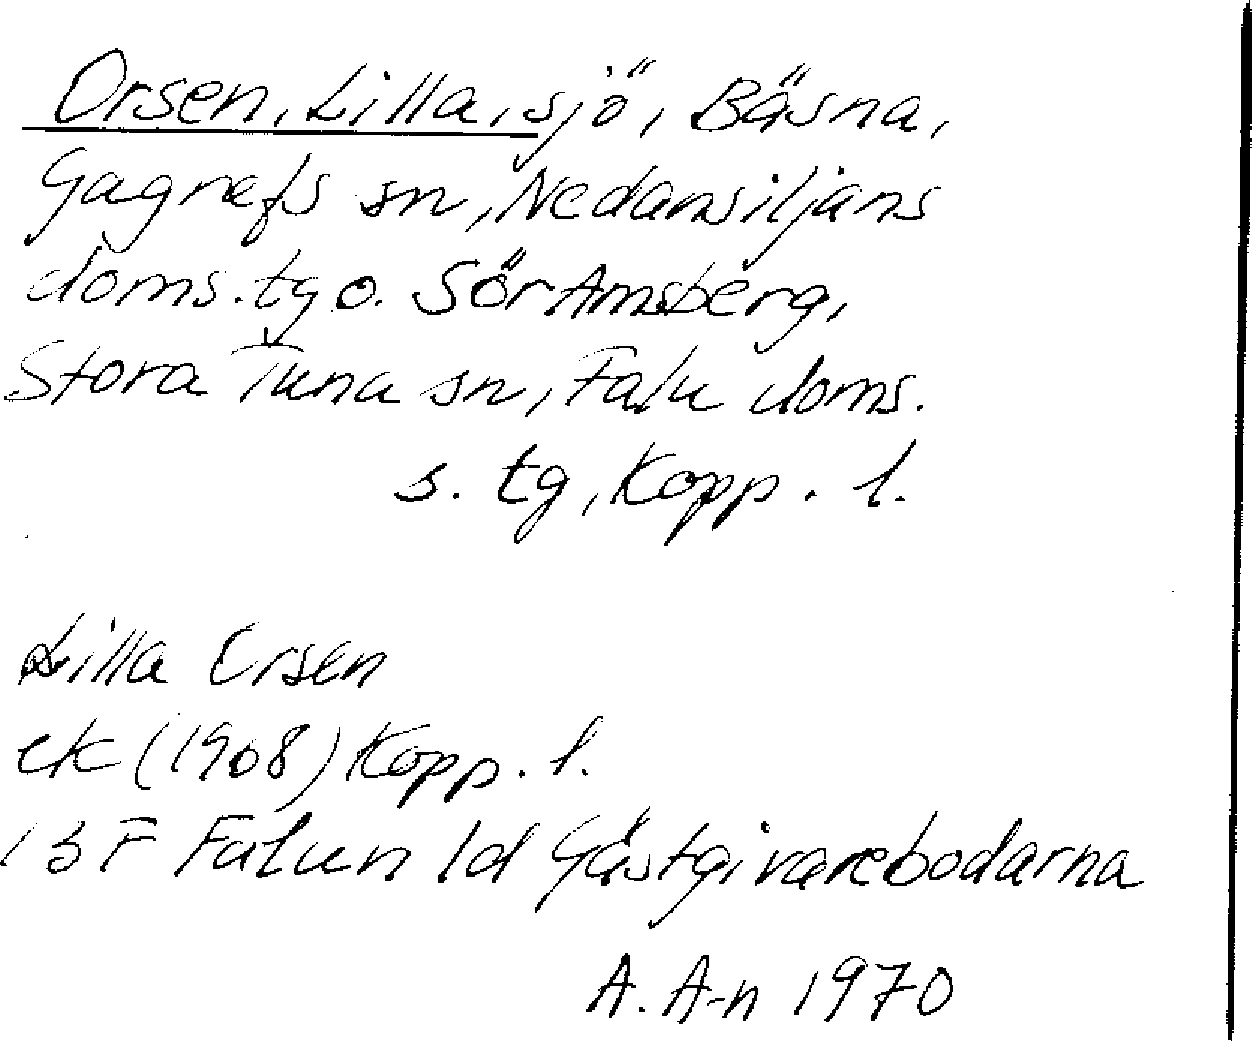 Orsen, Lilla, sjö, Bäsna,
Gagnefs sn, Nedansiljans
doms. tg o. Sör Amsberg,
Stora Tuna sn, Falu doms.
s. tg, Kopp. l.
Lilla Orsen
ek (1908) Kopp. l.
13 F Falun 1d Gästgivarebodarna
A. A-n 1970